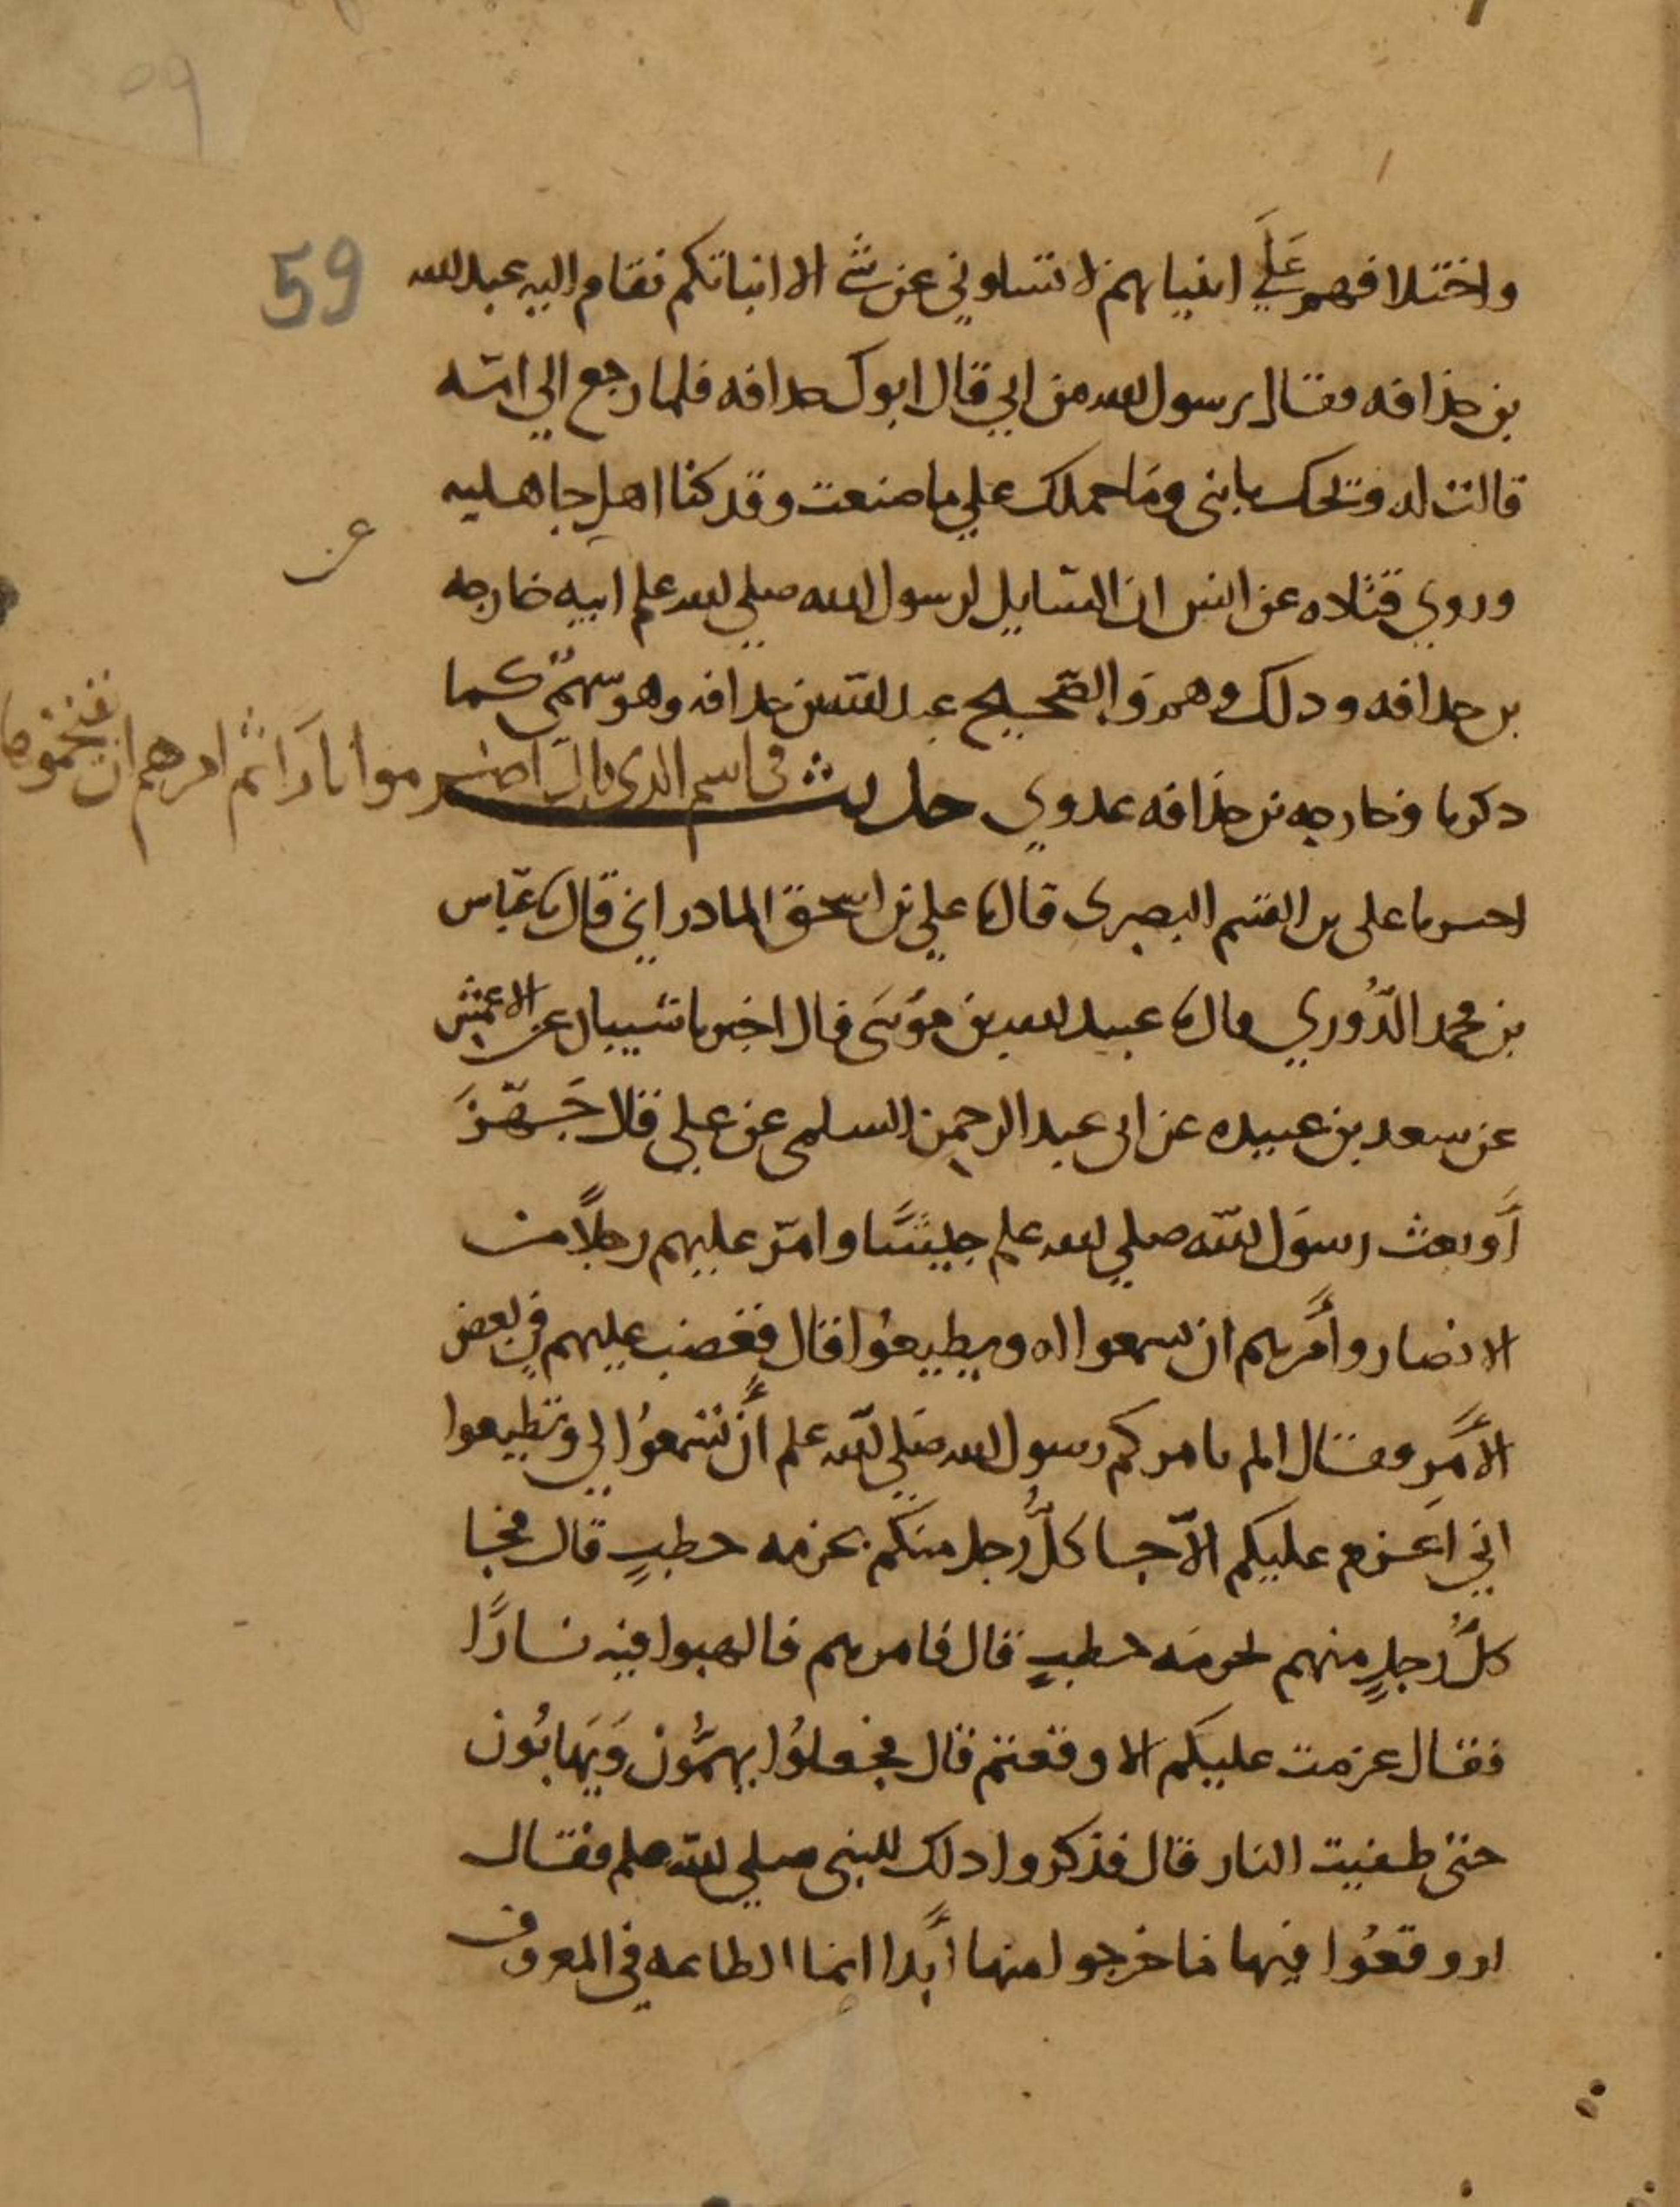 59
59
واختلافهم علي انبيايهم لا تسلوني عن شي الا انباتكم فقام اليه عبد الله
بن حذافه فقال يرسول الله من ابي قال ابوك حدافه فلما رجع الي امه
قالت له ويحك يا بني وما حملك علي ما صنعت وقد كنا اهل جاهليه
وروي قتاده عن انس ان السايل لرسول الله صلي الله علم ابيه خارجه
عن
بن حدافه ودلك وهم والصحيح عبد الله بن حدافه وهو سهمي كما
دكرنا وخارجه بن حذافه عدوي حديث في اسم الدي قال اضرموا نارا ثم امرهم ان يقتحموها
اخبرنا علي بن القسم البصري قال نا علي بن اسحق المادراني قال نا عباس
بن محمد الدوري قال نا عبيد الله بن موسى قال اخبرنا شيبان عن الاعمش
عن سعد بن عبيده عن ابي عبد الرحمن السلمي عن علي قال جهز
أو بعث رسول الله صلي الله علم جيشا وامر عليهم رجلا من
الانصار وأمرهم ان يسمعوا له ويطيعوا قال فغضب عليهم في بعض
الأمر فقال الم يامركم رسول الله صلي الله علم أن تسمعوا لي وتطيعوا
اني اعزم عليكم الا جا كل رجل منكم بحزمه حطب قال فجا
كل رجل منهم بحزمه حطب قال فامرهم فالهبوا فيه نارا
فقال عزمت عليكم الا وقعتم قال فجعلوا يهمون ويهابون
حتى طفيت النار قال فذكروا دلك للنبي صلي الله علم فقال
لو وقعوا فيها ما خرجوا منها أبدا انما الطاعه في المعروف